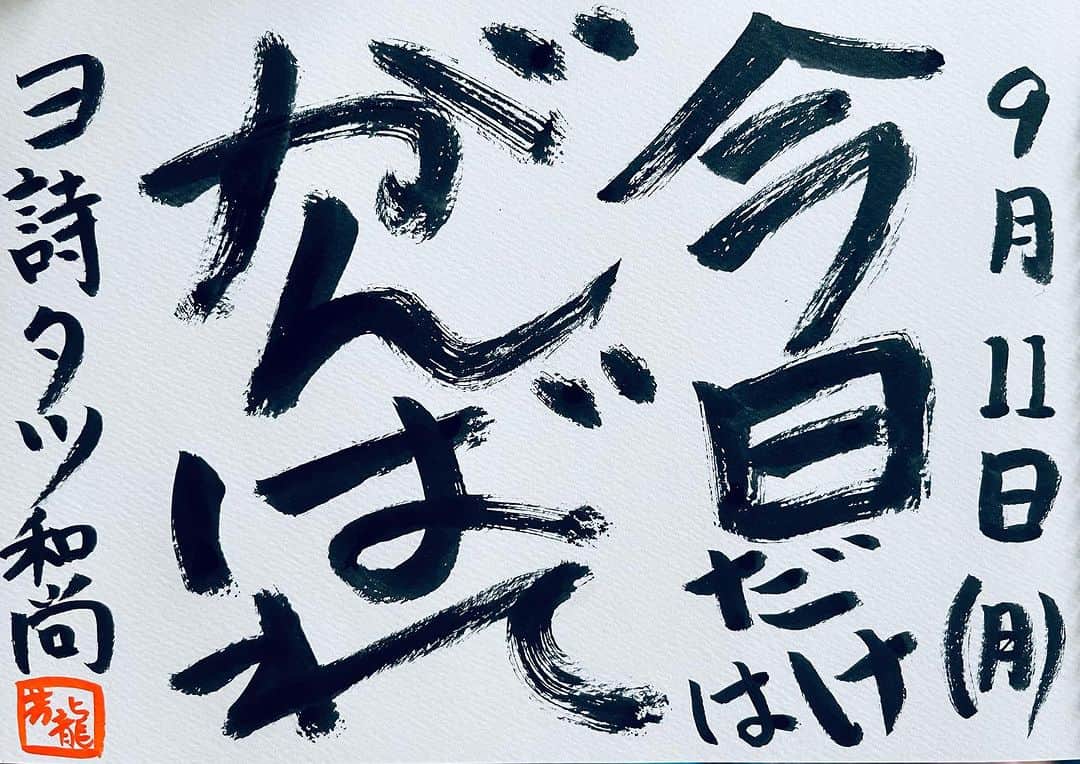 9月11日(月)
今日だけは
がんばれ
ヨ詩タツ和尚